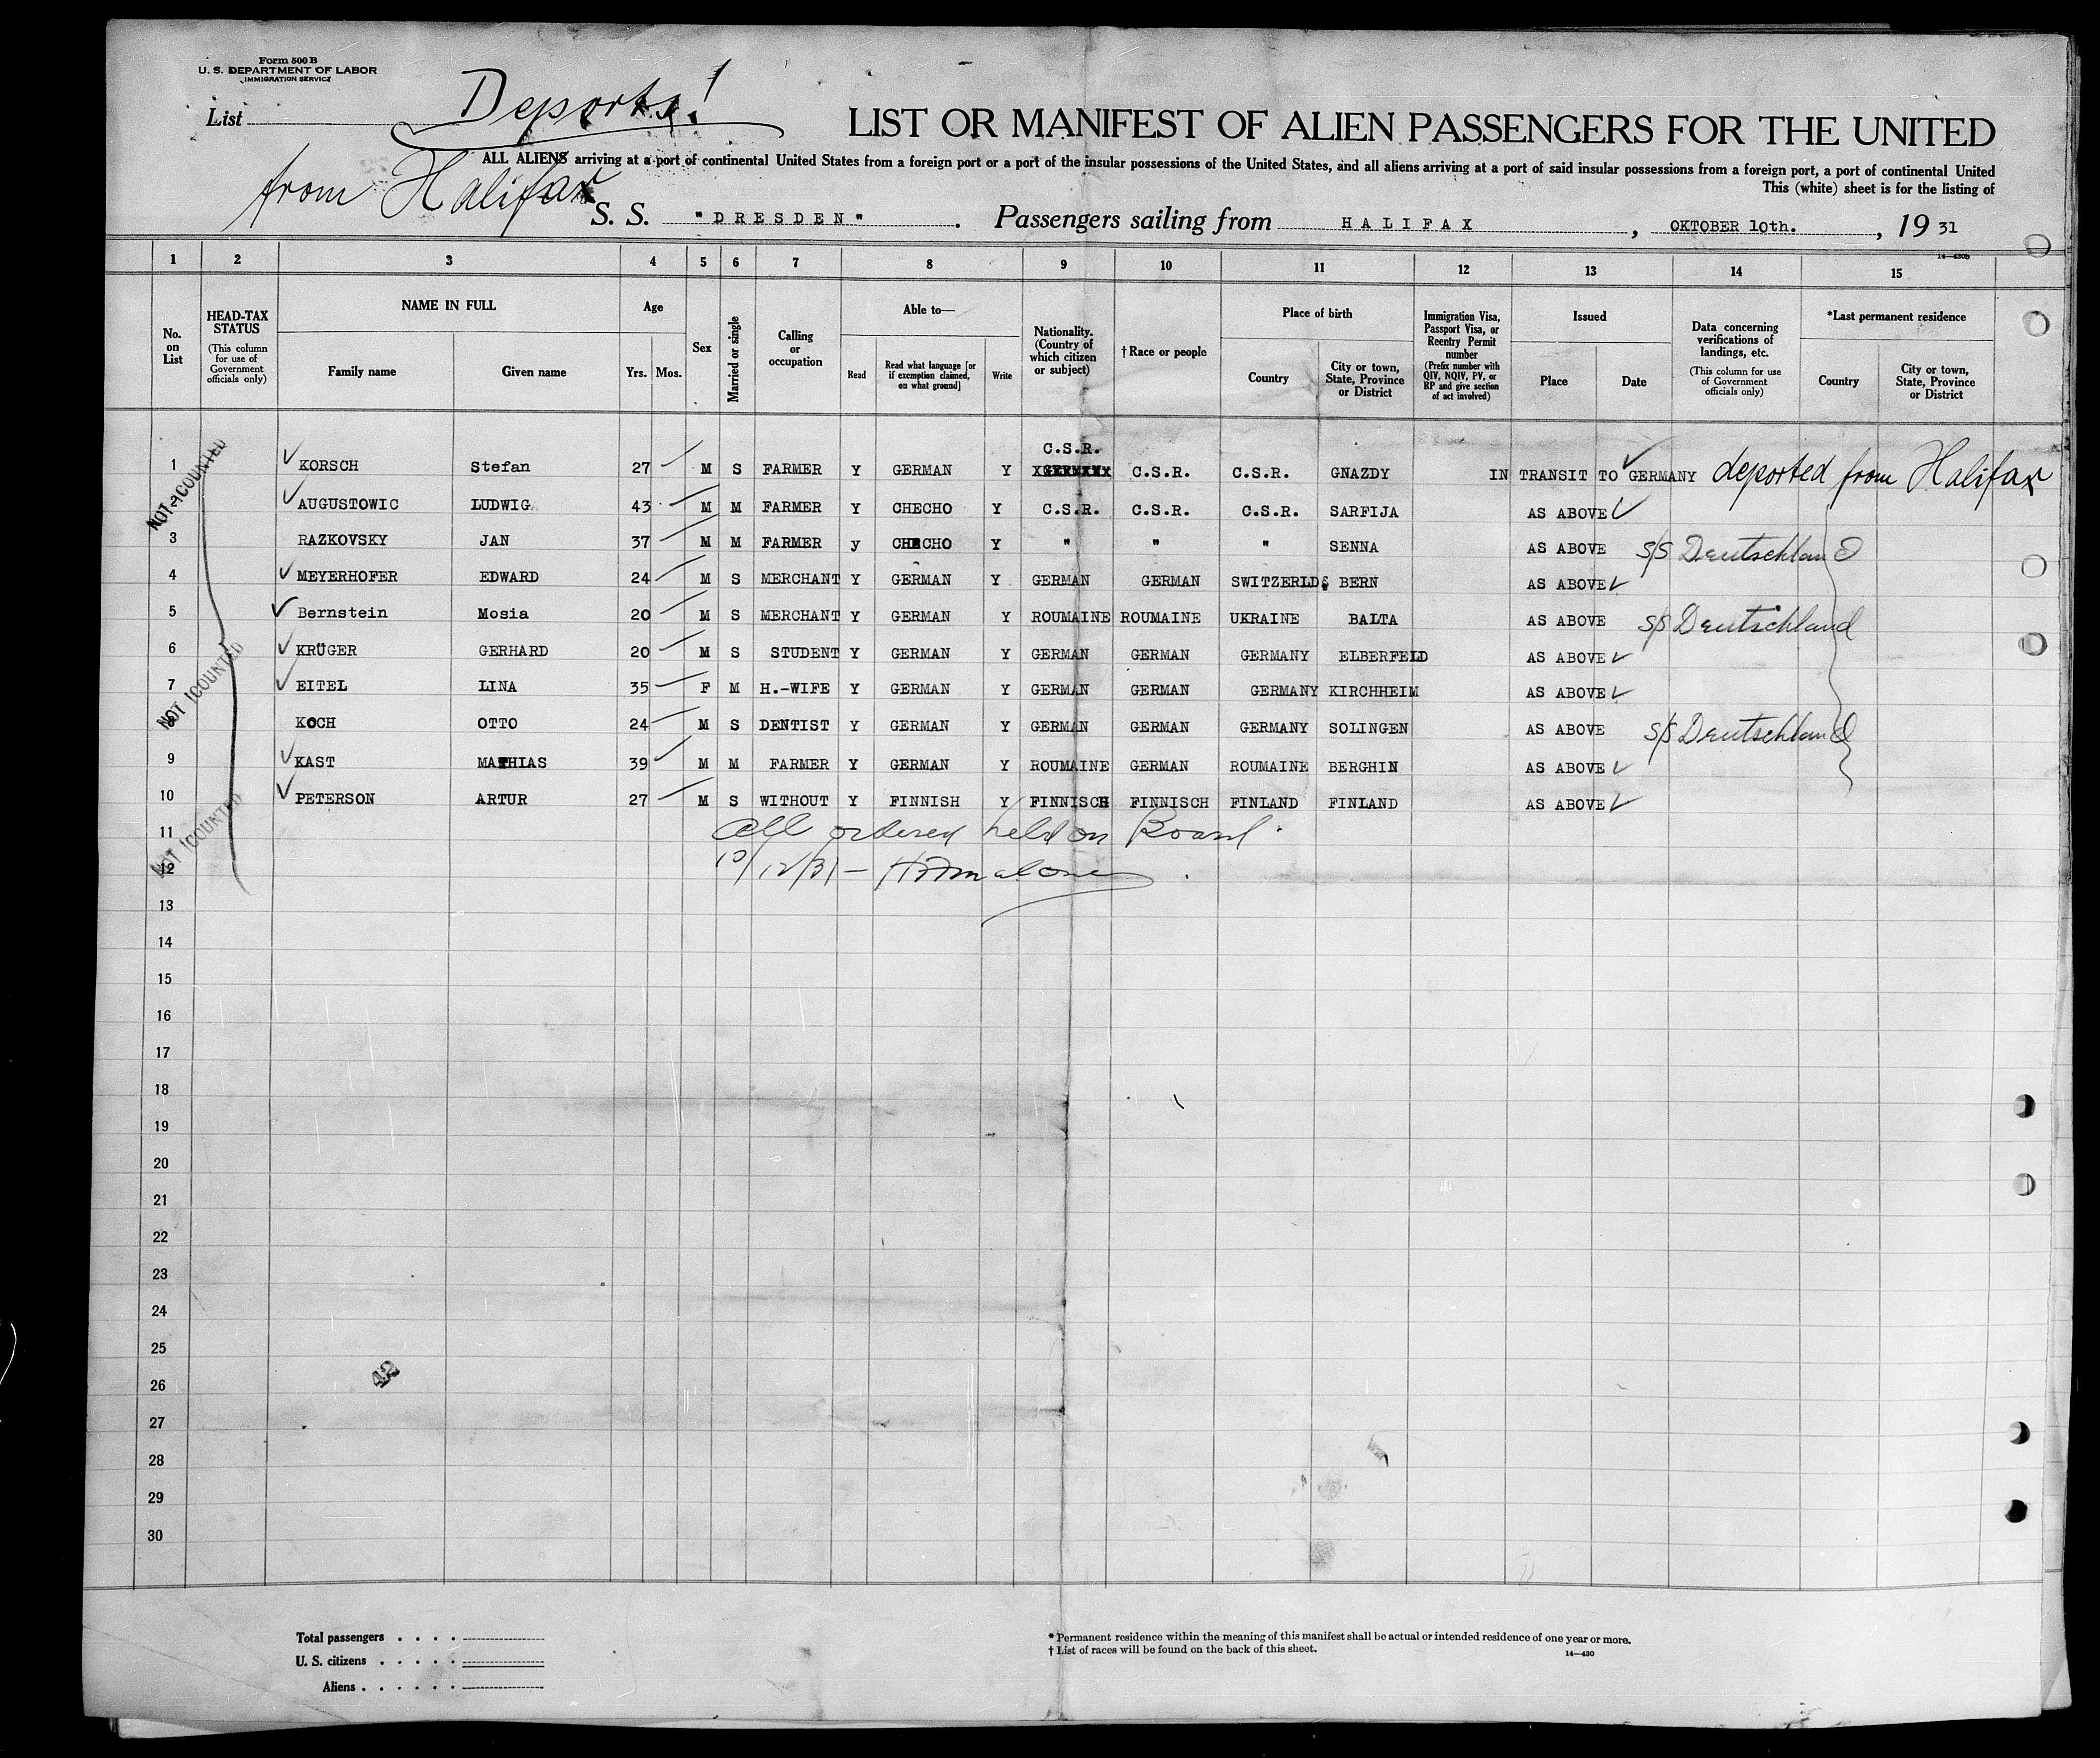 Form 500 B
U. S. DEPARTMENT OF LABOR
IMMIGRATION SERVICE
List Deports!
from Halifax
LIST OR MANIFEST OF ALIEN PASSENGERS FOR THE UNITED
ALL ALIENS arriving at a port of continental United States from a foreign port or a port of the insular possessions of the United States, and all aliens arriving at a port of said insular possessions from a foreign port, a port of continental United
This (white) sheet is for the listing of
S. S. "DRESDEN". Passengers sailing from HALIFAX, OKTOBER 10th., 19 31
14—430b
1 2 3 4 5 6 7 8 9 10 11 12 13 14 15
No. on List
HEAD-TAX STATUS (This column for use of Government officials only)
NAME IN FULL
Family name Given name
Age
Yrs. Mos.
Sex
Married or single
Calling or occupation
Able to—
Read
Read what language [or if exemption claimed, on what ground]
Write
Nationality. (Country of which citizen or subject)
†Race or people
Place of birth
Country
City or town, State, Province or District
Immigration Visa, Passport Visa, or Reentry Permit number (Prefix number with QIV, NQIV, PV, or RP and give section of act involved)
Issued
Place Date
Data concerning verifications of landings, etc. (This column for use of Government officials only)
*Last permanent residence
Country
City or town, State, Province or District
C.S.R.
1 KORSCH Stefan 27 M S FARMER Y GERMAN Y C.S.R. C.S.R. GNAZDY IN TRANSIT TO GERMANY deported from Halifax
2 AUGUSTOWIC LUDWIG 43 M M FARMER Y CHECHO Y C.S.R. C.S.R. C.S.R. SARFIJA AS ABOVE
3 RAZKOVSKY JAN 37 M M FARMER y CHECHO Y " " " SENNA AS ABOVE S/S Deutschland
4 MEYERHOFER EDWARD 24 M S MERCHANT Y GERMAN Y GERMAN GERMAN SWITZERLD. BERN AS ABOVE
5 Bernstein Mosia 20 M S MERCHANT Y GERMAN Y ROUMAINE ROUMAINE UKRAINE BALTA AS ABOVE S/S Deutschland
6 KRÜGER GERHARD 20 M S STUDENT Y GERMAN Y GERMAN GERMAN GERMANY ELBERFELD AS ABOVE
7 EITEL LINA 35 F M H.-WIFE Y GERMAN Y GERMAN GERMAN GERMANY KIRCHHEIM AS ABOVE
8 KOCH OTTO 24 M S DENTIST Y GERMAN Y GERMAN GERMAN GERMANY SOLINGEN AS ABOVE S/S Deutschland
9 KAST MATHIAS 39 M M FARMER Y GERMAN Y ROUMAINE GERMAN ROUMAINE BERGHIN AS ABOVE
10 PETERSON ARTUR 27 M S WITHOUT Y FINNISH Y FINNISCH FINNISCH FINLAND FINLAND AS ABOVE
NOT COUNTED
NOT COUNTED
NOT COUNTED
11 All ordered held on Board.
12 10/12/31 — HFMalone
13
14
15
16
17
18
19
20
21
22
23
24
25
26
42
27
28
29
30
Total passengers . . . .
U. S. citizens . . . . .
Aliens . . . . . .
* Permanent residence within the meaning of this manifest shall be actual or intended residence of one year or more.
† List of races will be found on the back of this sheet.
14—430